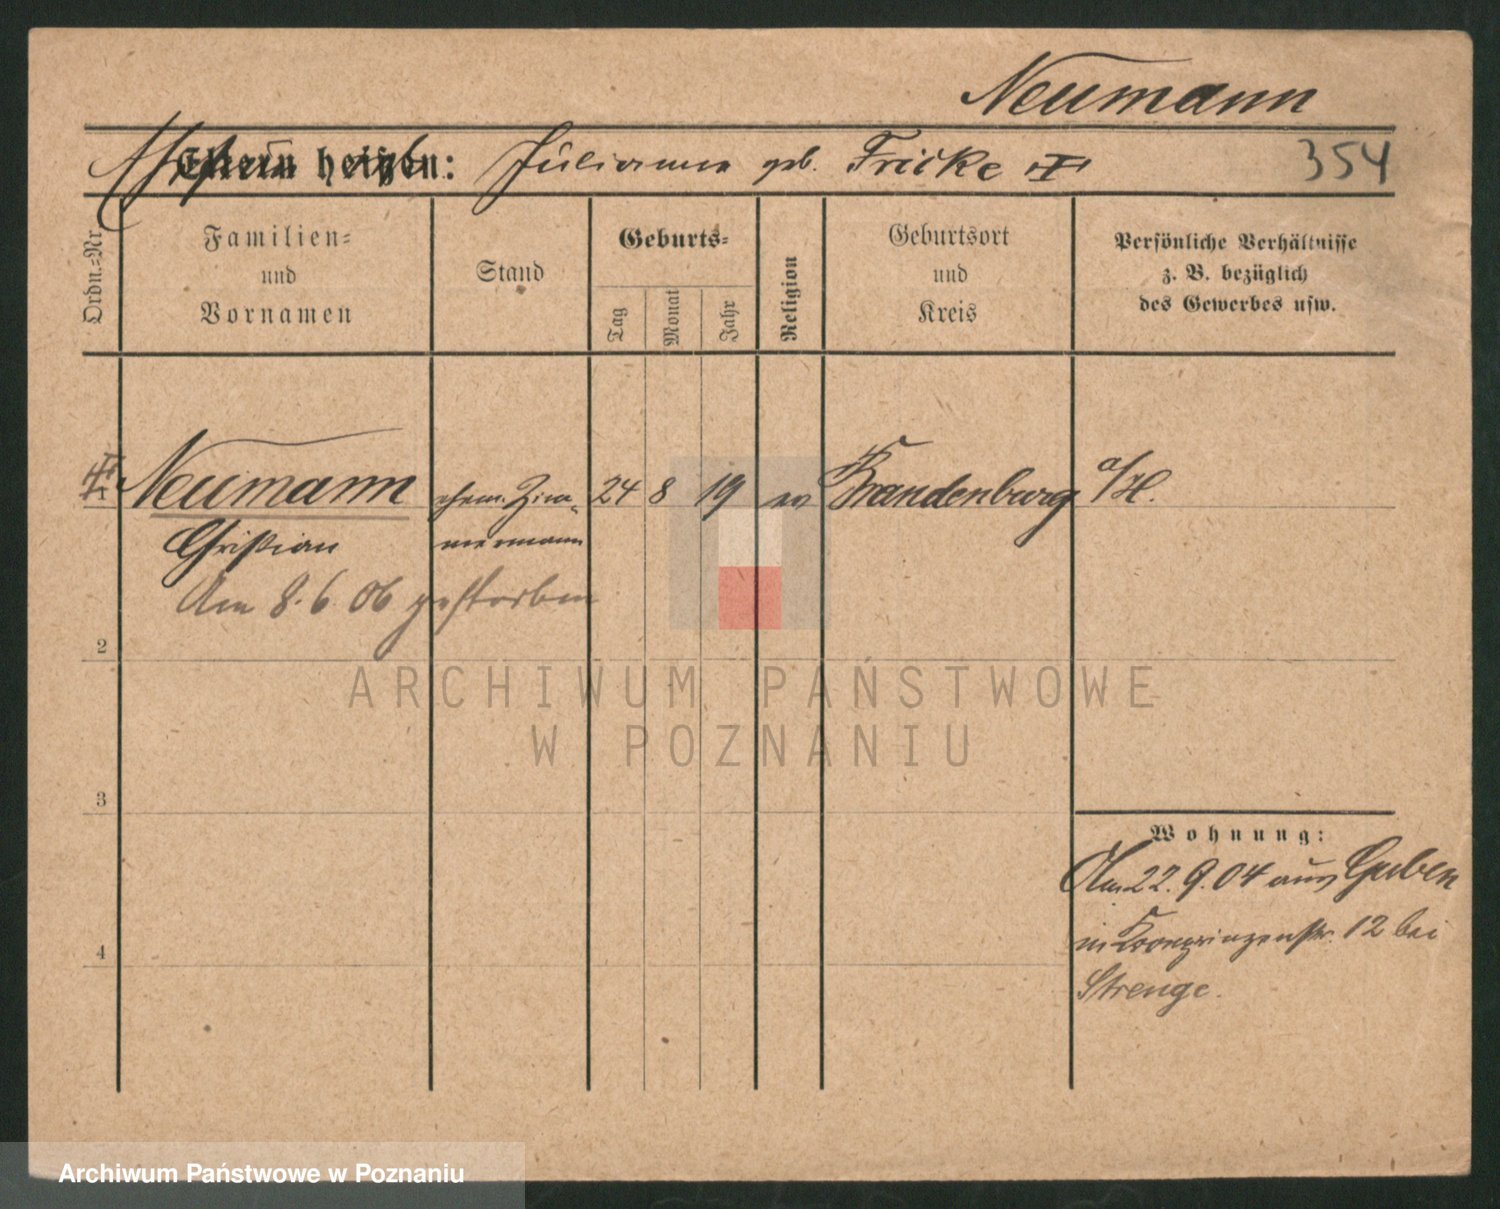 Neumann
Eltern heißen: Julianna geb. Fricke
354
Ordn.-Nr.
Familien-
und
Vornamen
Stand
Geburts-
Tag
Monat
Jahr
Religion
Geburtsort
und
Kreis
Persönliche Verhältnisse
z. B. bezüglich
des Gewerbes usw.
Neumann ehem. Zim- 24 8 19 ev Brandenburg a/H.
Christian mermann
Am 8.6.06 gestorben
2
ARCHIWUM PAŃSTWOWE
W POZNANIU
3
Wohnung:
Am 22.9.04 aus Guben
in Kronprinzenstr. 12 bei
4
Strenge.
Archiwum Państwowe w Poznaniu